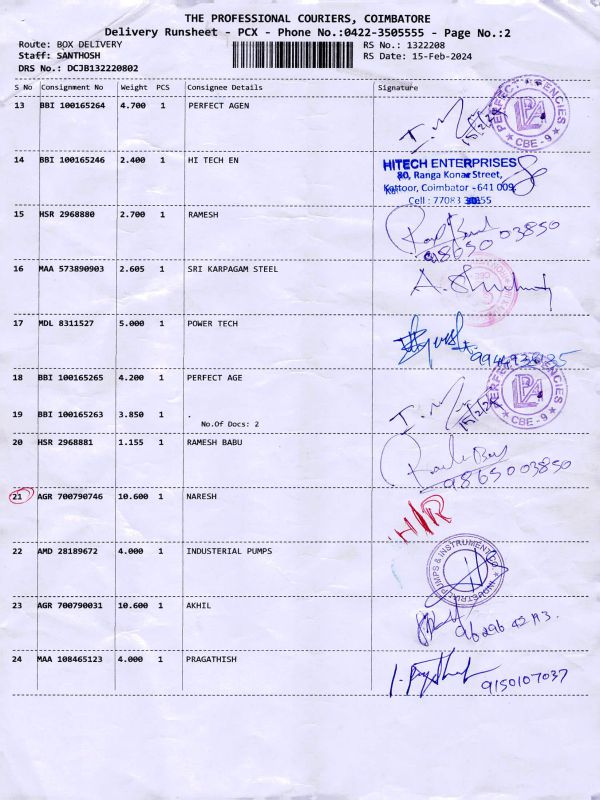 THE PROFESSIONAL COURIERS, COIMBATORE
Delivery Runsheet - PCX - Phone No.:0422-3505555 - Page No.:2
Route: BOX DELIVERY RS No.: 1322208
Staff: SANTHOSH RS Date: 15-Feb-2024
DRS No.: DCJB132220802
S No Consignment No Weight PCS Consignee Details Signature
13 BBI 100165264 4.700 1 PERFECT AGEN
15/2/24
PERFECT AGENCIES
CBE - 9
14 BBI 100165246 2.400 1 HI TECH EN
HITECH ENTERPRISES
80, Ranga Konar Street,
Kattoor, Coimbator - 641 009
Cell : 77083
15 HSR 2968880 2.700 1 RAMESH
9865003850
16 MAA 573890903 2.605 1 SRI KARPAGAM STEEL
17 MDL 8311527 5.000 1 POWER TECH
18 BBI 100165265 4.200 1 PERFECT AGE
15/2/24
PERFECT AGENCIES
CBE - 9
19 BBI 100165263 3.850 1 .
No.Of Docs: 2
20 HSR 2968881 1.155 1 RAMESH BABU
9865003850
21 AGR 700790746 10.600 1 NARESH
22 AMD 28189672 4.000 1 INDUSTERIAL PUMPS
INDUSTRIAL PUMPS & INSTRUMENT CO.
23 AGR 700790031 10.600 1 AKHIL
24 MAA 108465123 4.000 1 PRAGATHISH
9150107037